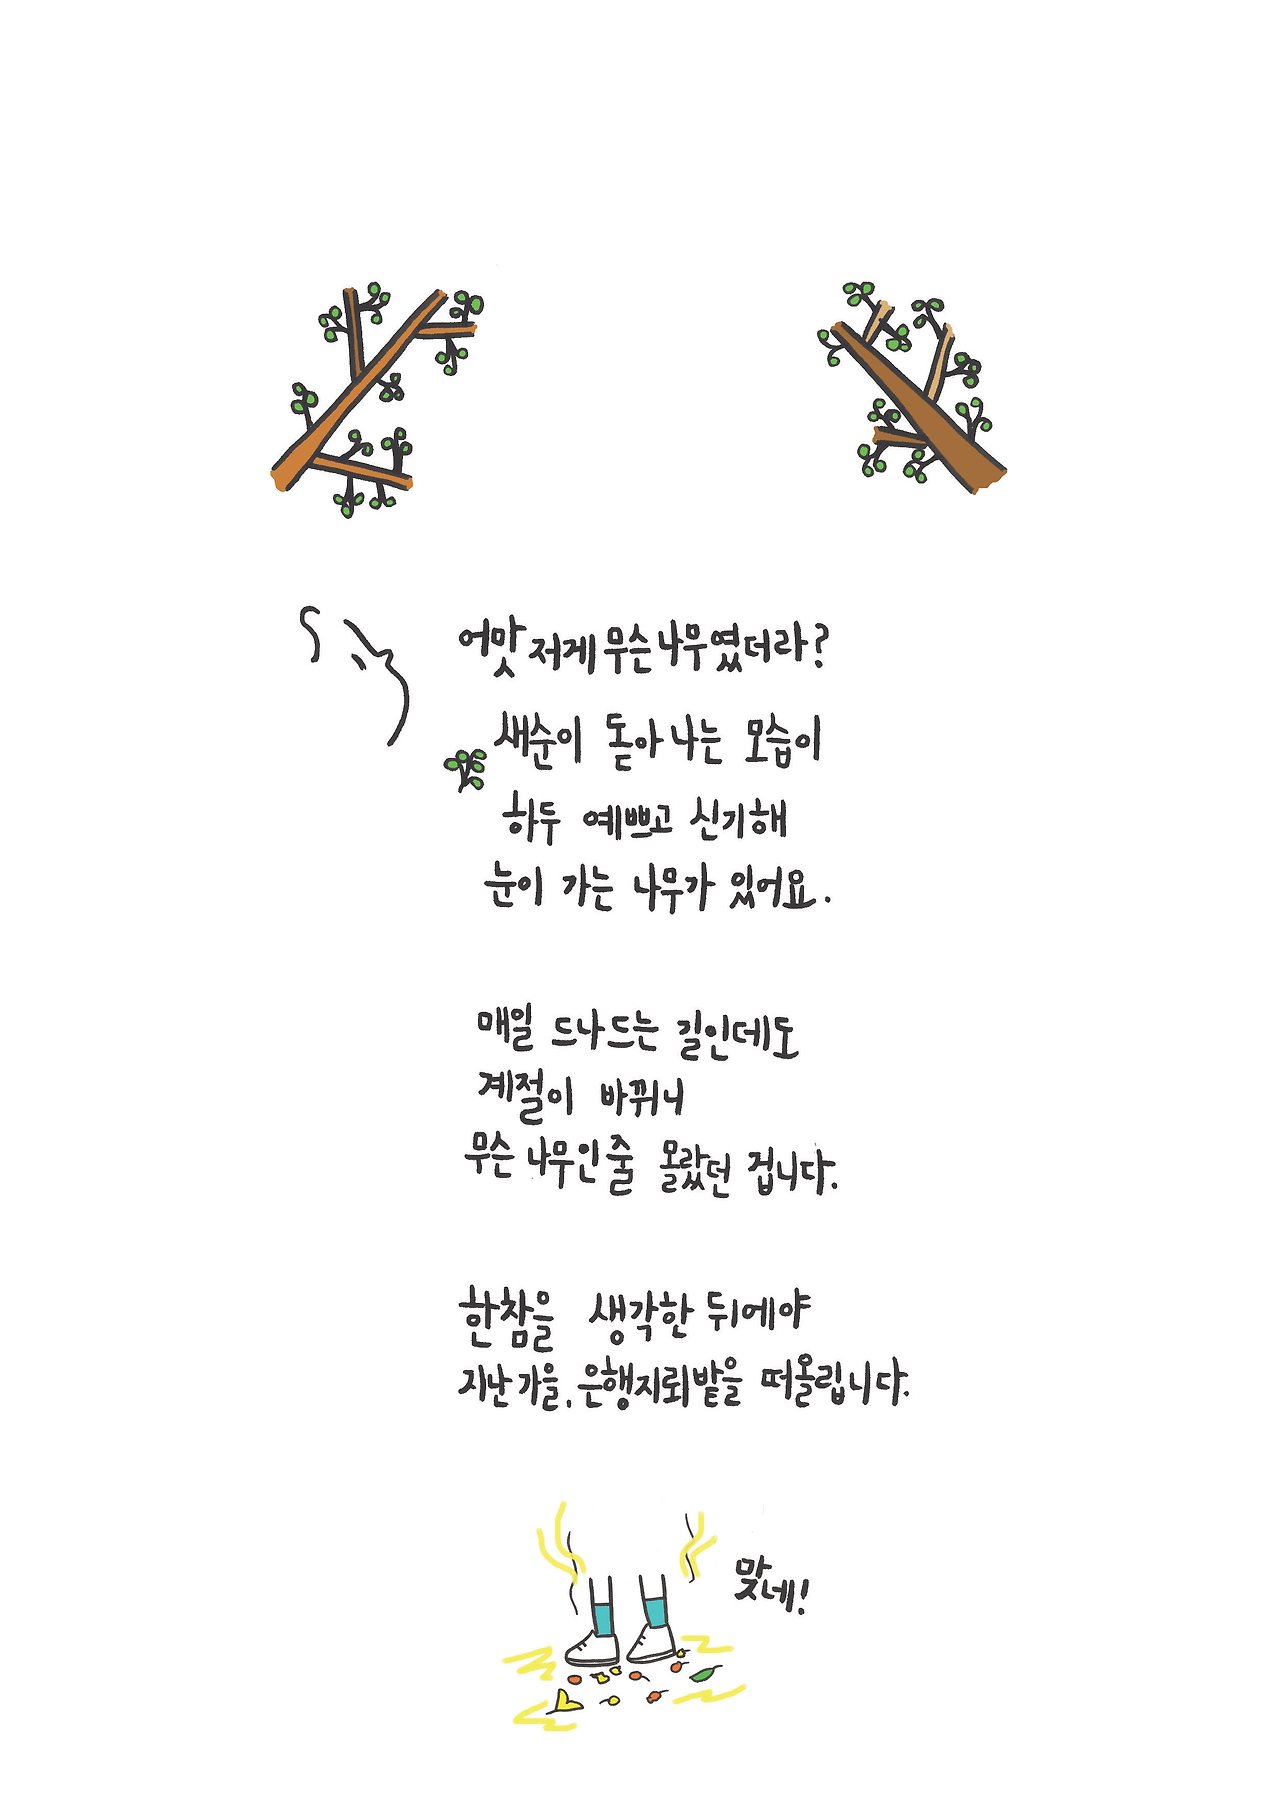 어맛 저게 무슨 나무였더라?
새순이 돋아나는 모습이
하두 예쁘고 신기해
눈이 가는 나무가 있어요.
매일 드나드는 길인데도
계절이 바뀌니
무슨 나무인줄 몰랐던 겁니다.
한참을 생각한 뒤에야
지난 가을, 은행지뢰밭을 떠올립니다.
맞네!